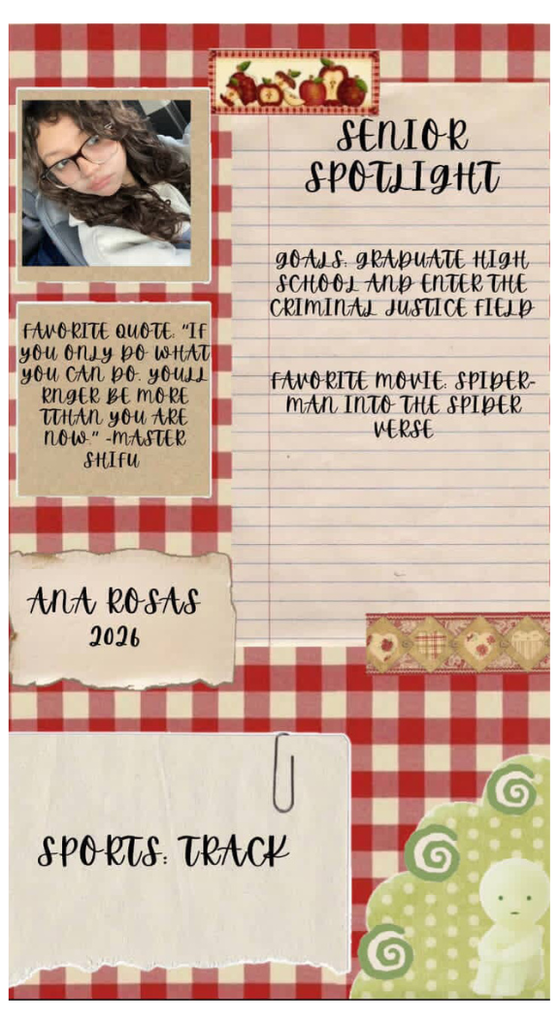 SENIOR
SPOTLIGHT
GOALS: GRADUATE HIGH
SCHOOL AND ENTER THE
CRIMINAL JUSTICE FIELD
FAVORITE MOVIE: SPIDER-
MAN INTO THE SPIDER
VERSE
FAVORITE QUOTE: "IF
YOU ONLY DO WHAT
YOU CAN DO, YOULL
RNGER BE MORE
TTHAN YOU ARE
NOW." -MASTER
SHIFU
ANA ROSAS
2026
SPORTS: TRACK